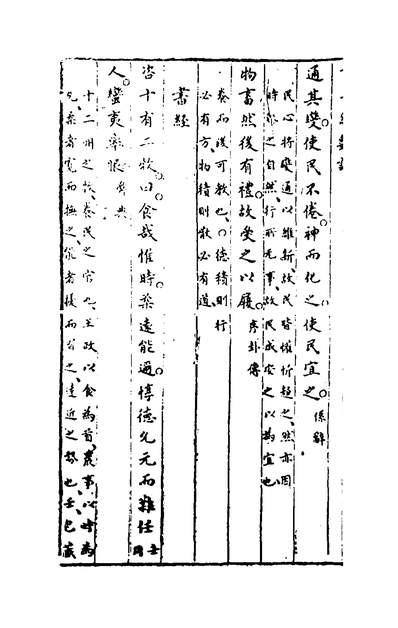 通其變使民不倦神而化之使民宜之 係辭
民心將變通以維新故民皆懽忻趨之然亦因
時勢之自然行所無事故民咸安之以為宜也
物畜然後有禮故受之以履 序卦傳
養而後可教也○德積則行
必有方物積則散必有道
書經
咨十有二牧曰食哉惟時柔遠能邇惇德允元而難任 壬同
人蠻夷率服 舜典
十二州之牧養民之官也王政以食為首農事以時為
先柔者寬而撫之能者擾而習之遠近之勢也壬包藏